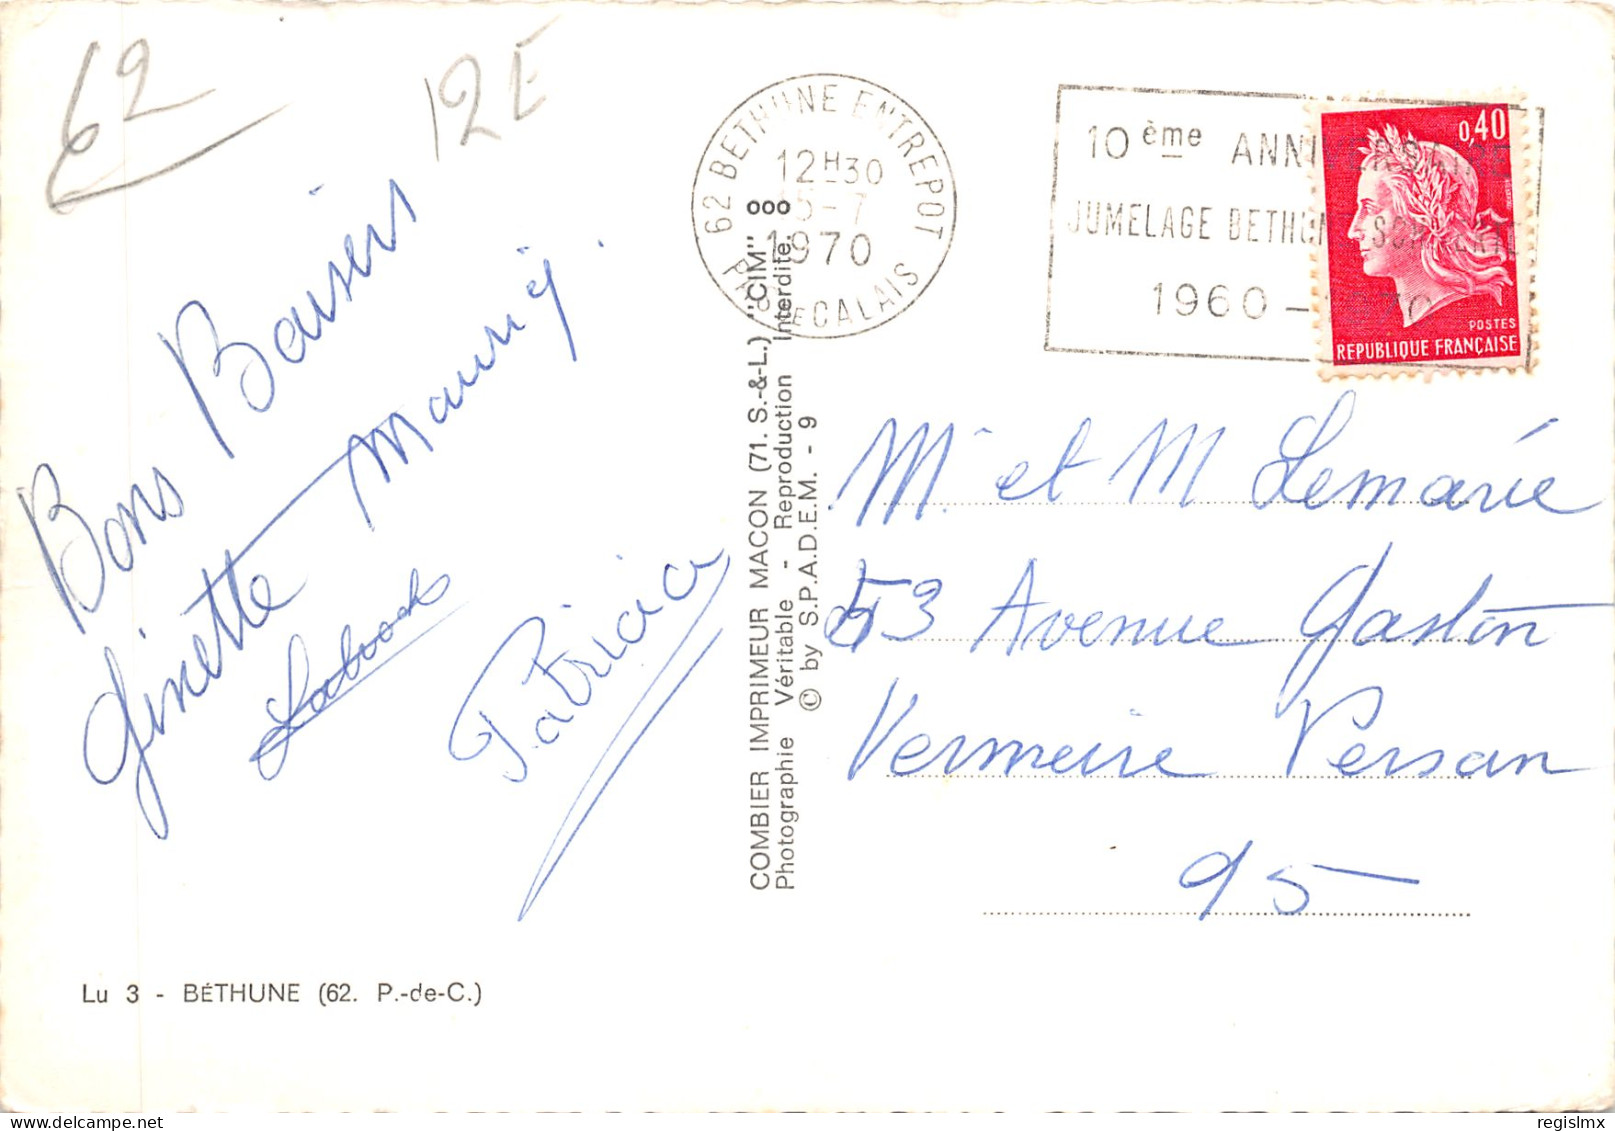 62
12E
Bons Baisers
Ginette Maurice
Patricia
Lu 3 - BÉTHUNE (62. P.-de-C.)
COMBIER IMPRIMEUR MACON (71. S.-&-L.) "CIM"
Photographie Véritable - Reproduction Interdite.
© by S.P.A.D.E.M. - 9
62 BETHUNE ENTREPOT
12H30
5-7
1970
PAS DE CALAIS
10ème ANNIVERSAIRE
JUMELAGE BETHUNE
1960 - 1970
0,40
POSTES
REPUBLIQUE FRANÇAISE
Mr et M Lemarié
53 Avenue Gaston
Vermeire Persan
95
regislmx